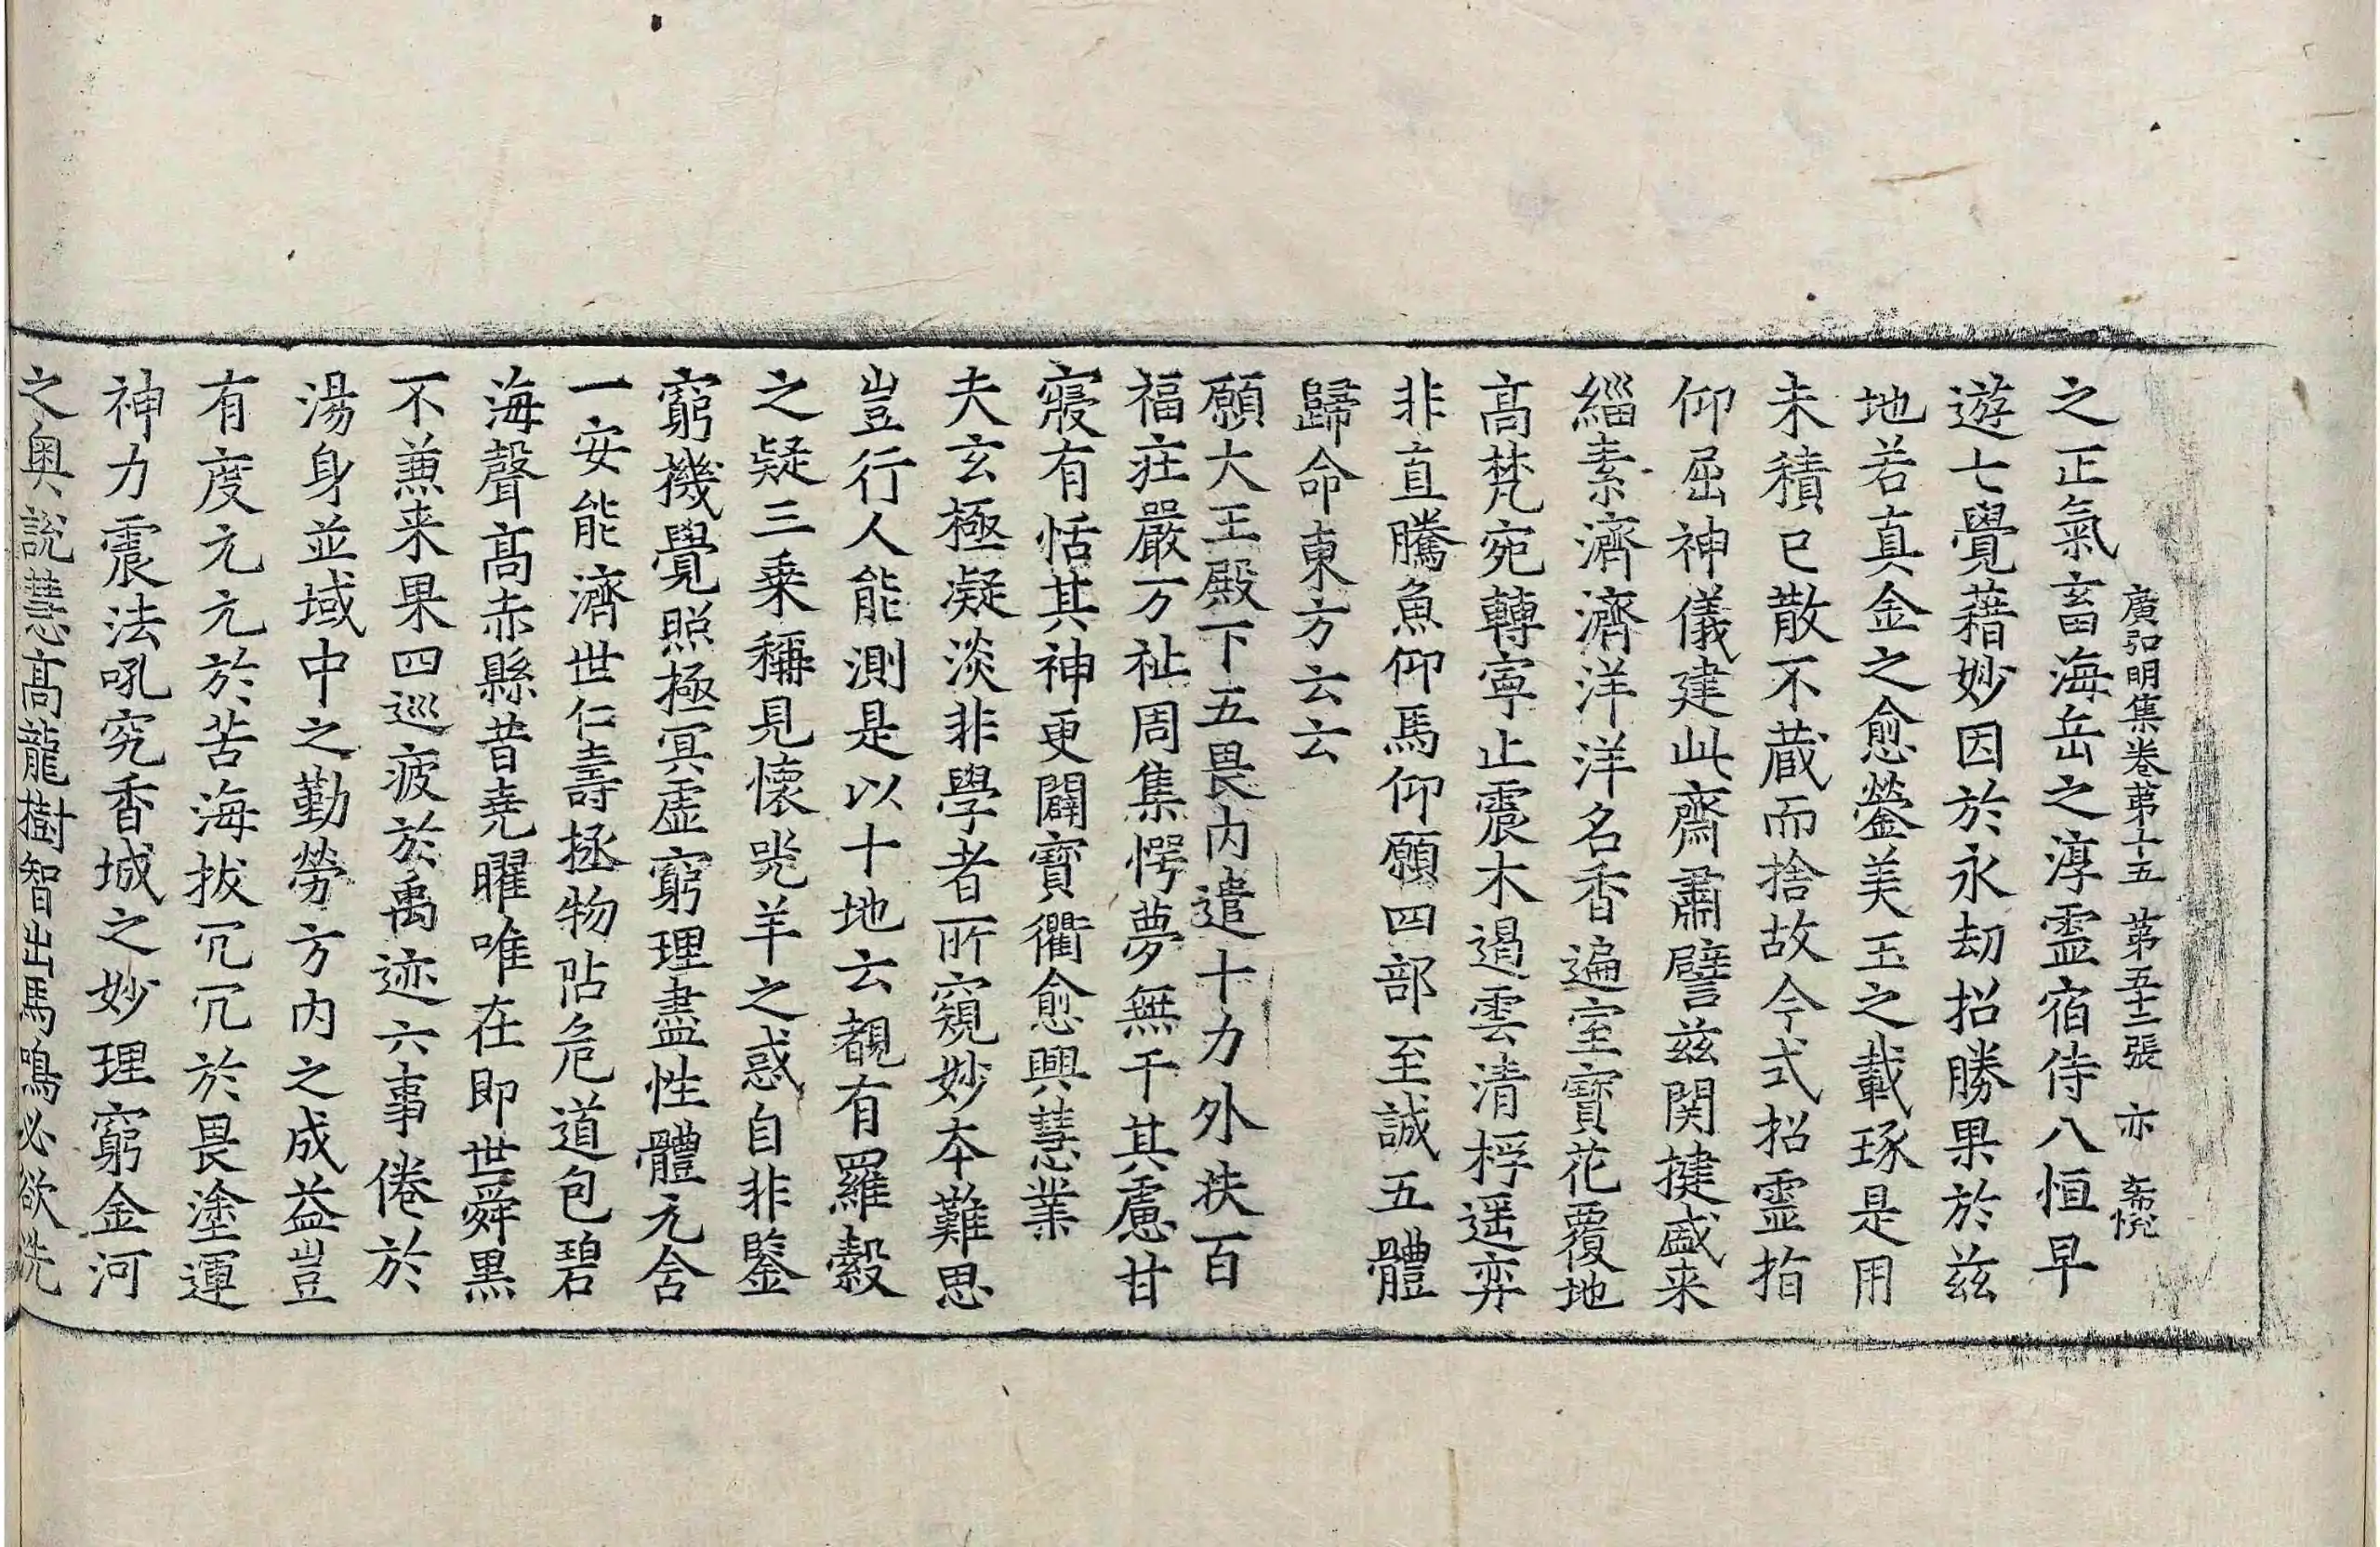 廣弘明集卷第十五 第五十二張 亦
之正氣畜海岳之淳靈宿侍八恒早
遊七覺藉妙因於永劫招勝果於茲
地若真金之愈鎣美玉之載琢是用
未積已散不蔵而捨故今式招靈指
仰屈神儀建此齋肅譬茲関揵盛来
緇素濟濟洋洋名香遍室寳花覆地
髙梵宛轉寧止震木遏雲清桴遥弈
非直騰魚仰馬仰願四部至誠五體
歸命東方云云
願大王殿下五畏内遣十力外扶百
福莊嚴万祉周集愕夢無干其慮甘
寢有恬其神更闢寳衢愈興慧業
夫玄極凝淡非學者所窺妙本難思
豈行人能測是以十地云覩有羅縠
之疑三乗稱見懷兕羊之惑自非鍳
窮機覺照極冥虚窮理盡性體元含
一安能濟世仁壽拯物阽危道包碧
海聲髙赤縣昔堯曜唯在即世舜黒
不兼来果四巡疲於禹迹六事倦於
湯身並域中之勤勞方内之成益豈
有度元元於苦海拔冗冗於畏塗運
神力震法吼究香城之妙理窮金河
之奥說慧髙龍樹智出馬鳴必欲洗